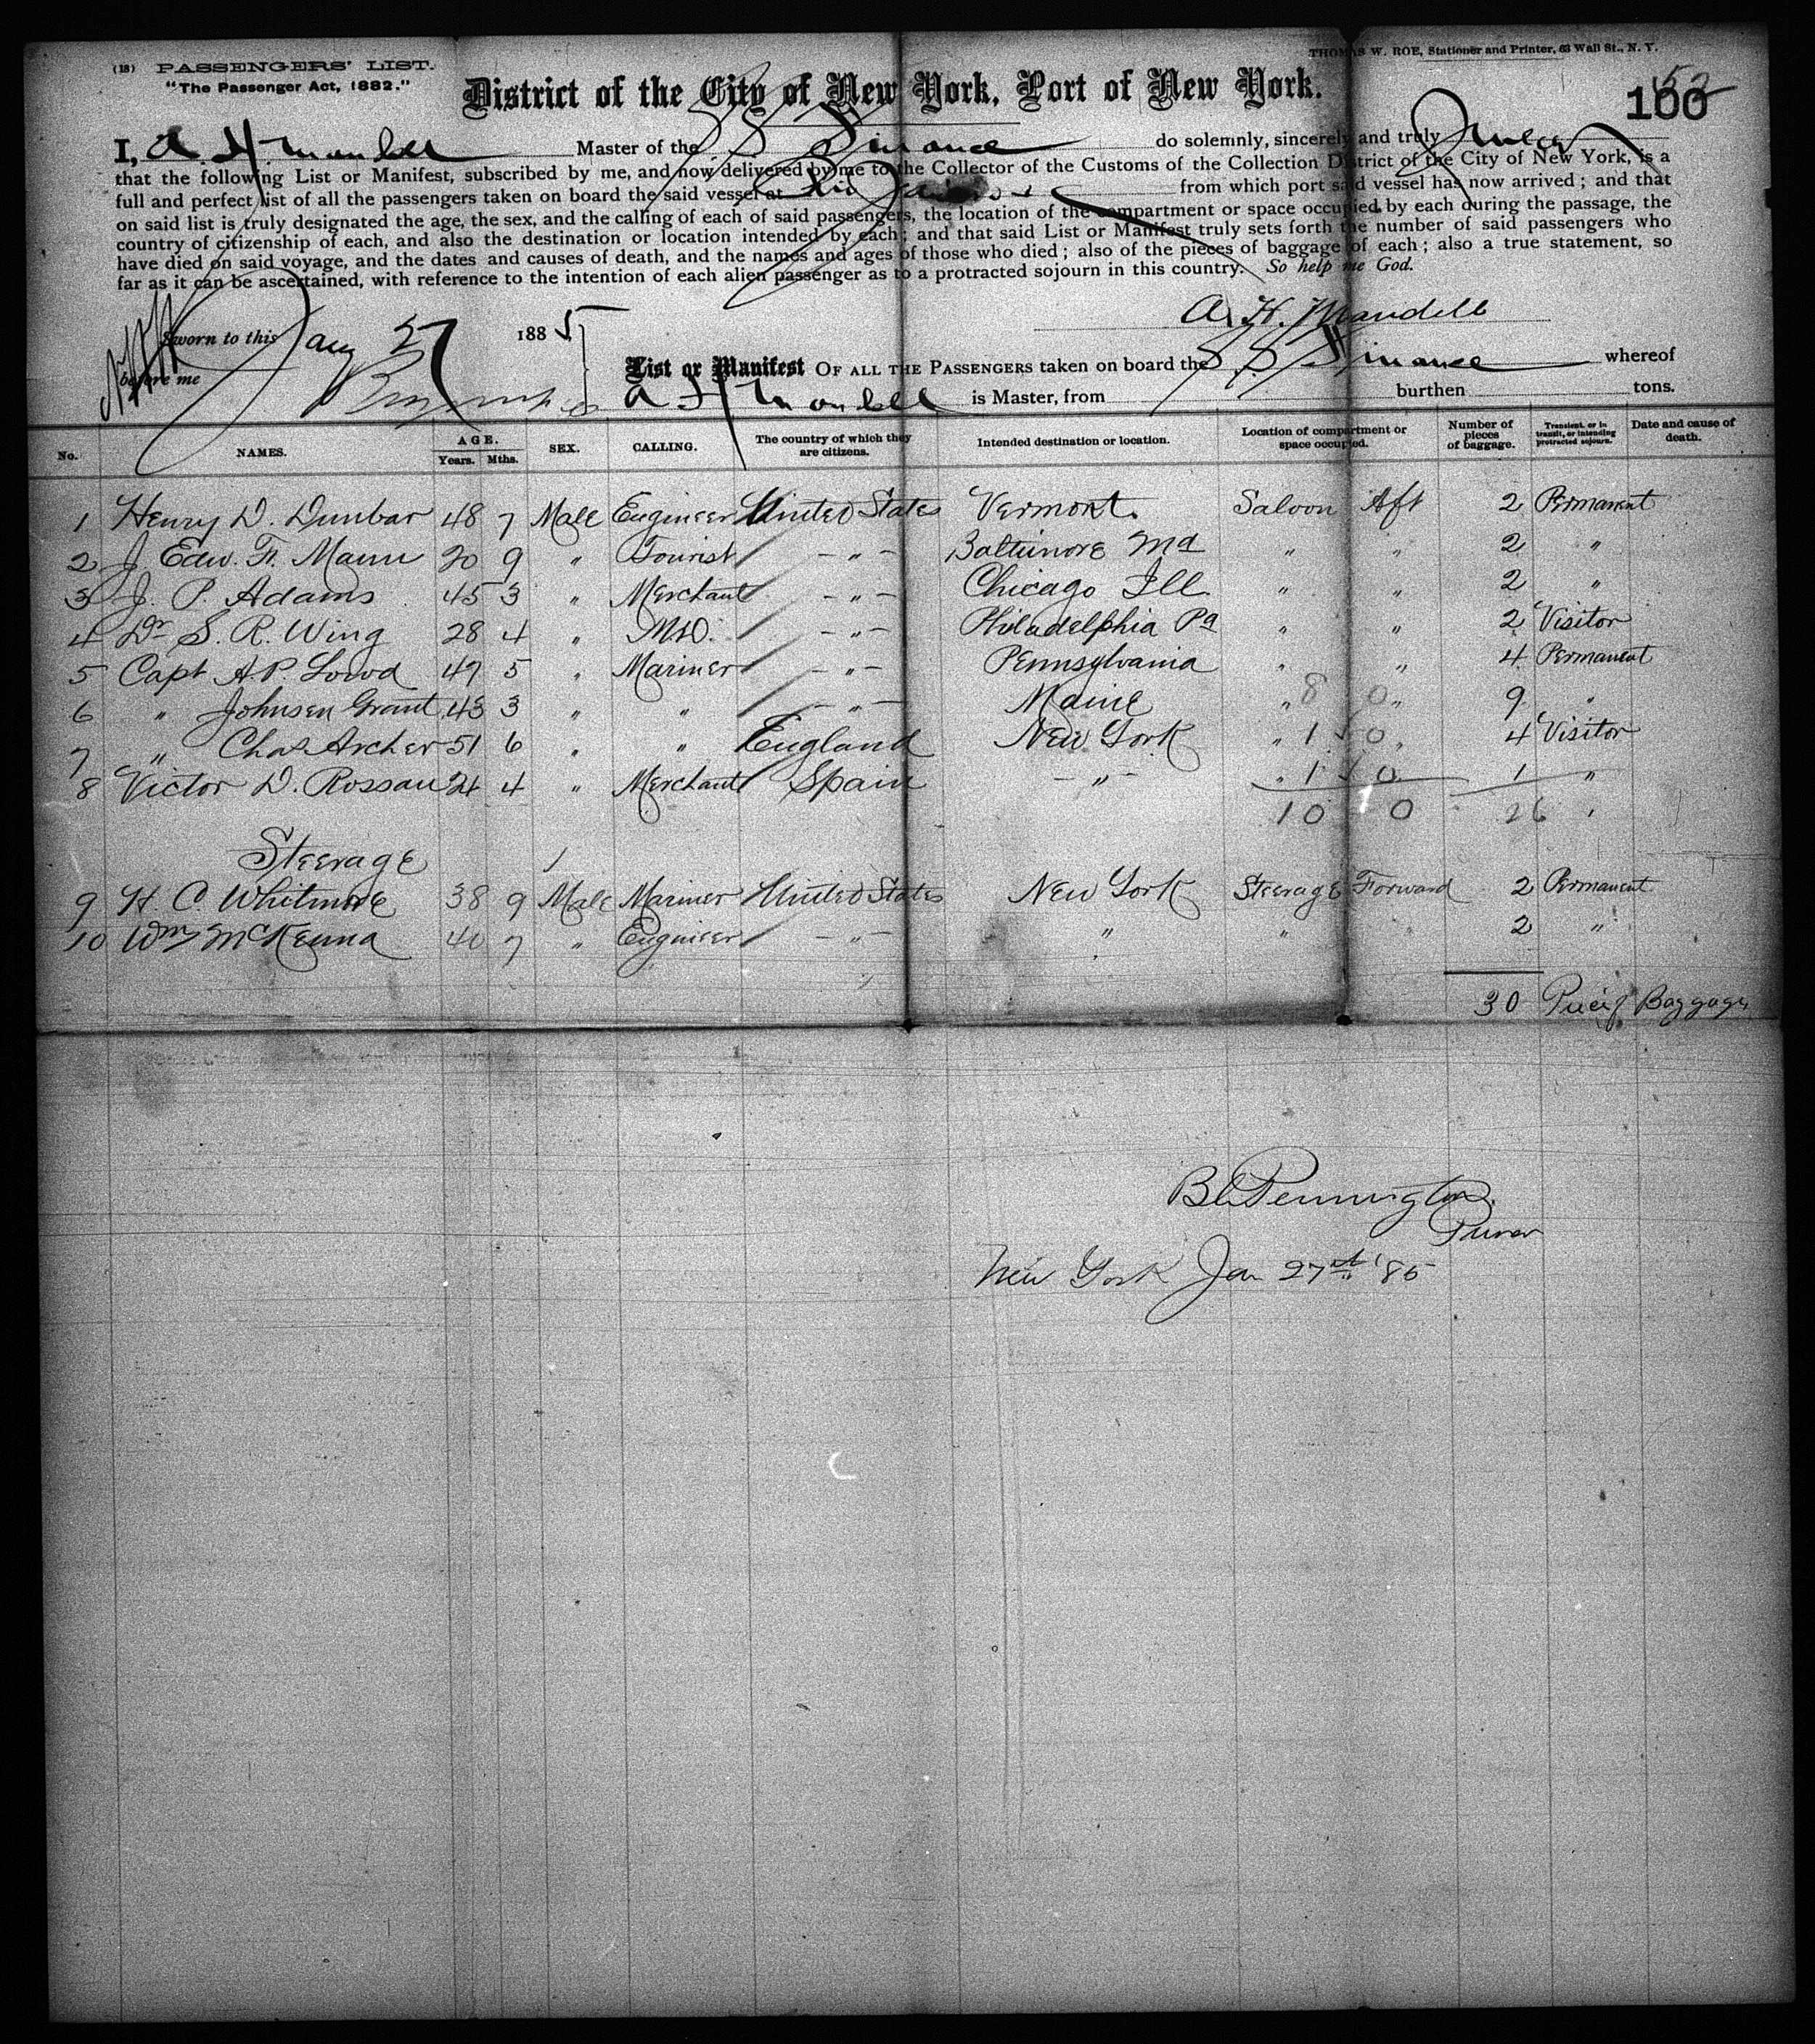 THOMAS W. ROE, Stationer and Printer, 63 Wall St., N. Y.
(18) PASSENGERS' LIST.
"The Passenger Act, 1882."
District of the City of New York, Port of New York.
52
100
I, A. H. Mandell Master of the S S Finance do solemnly, sincerely and truly swear
that the following List or Manifest, subscribed by me, and now delivered by me to the Collector of the Customs of the Collection District of the City of New York, is a
full and perfect list of all the passengers taken on board the said vessel at Rio Janeiro from which port said vessel has now arrived; and that
on said list is truly designated the age, the sex, and the calling of each of said passengers, the location of the compartment or space occupied by each during the passage, the
country of citizenship of each, and also the destination or location intended by each; and that said List or Manifest truly sets forth the number of said passengers who
have died on said voyage, and the dates and causes of death, and the names and ages of those who died; also of the pieces of baggage of each; also a true statement, so
far as it can be ascertained, with reference to the intention of each alien passenger as to a protracted sojourn in this country. So help me God.
A. H. Mandell
Sworn to this Jany 27 1885
before me
List or Manifest OF ALL THE PASSENGERS taken on board the S. S. Finance whereof
A H Mandell is Master, from burthen tons.
No. NAMES. AGE. Years. Mths. SEX. CALLING. The country of which they are citizens. Intended destination or location. Location of compartment or space occupied. Number of pieces of baggage. Transient, or in transit, or intending protracted sojourn. Date and cause of death.
1 Henry D. Dunbar 48 7 Male Engineer United States Vermont. Saloon Aft 2 Permanent
2 J. Edw. F. Mann 20 9 " Tourist - " - Baltimore Md " " 2 "
3 J. P. Adams 45 3 " Merchant - " - Chicago Ill. " " 2 "
4 Dr S. R. Wing 28 4 " M.D. - " - Philadelphia Pa " " 2 Visitor
5 Capt A. P. Lowd 47 5 " Mariner - " - Pennsylvania " " 4 Permanent
6 " Johnson Grant 43 3 " " - " - Maine " 8 0 " 9 "
7 " Chas Archer 51 6 " " England New York " 1 0 " 4 Visitor
8 Victor D. Rossau 24 4 " Merchant Spain - " - " 1 0 1 "
10 0 26
Steerage
9 H. C Whitmore 38 9 Male Mariner United States New York Steerage Forward 2 Permanent
10 Wm McKenna 40 7 " Engineer - " - " " " 2 "
30 Baggage
B C Pennington
Purser
New York Jan 27th '85